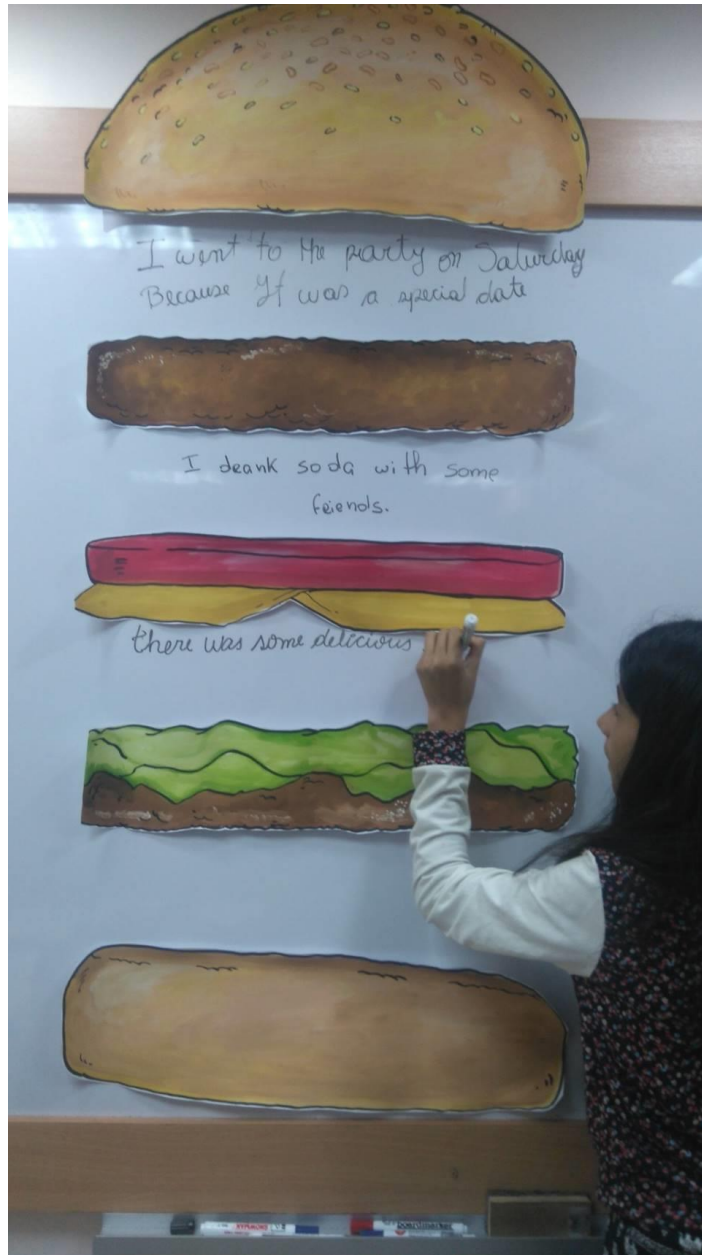 I went to the party on Saturday
Because It was a special date
I drank soda with some
friends.
there was some delicious
boardmarker